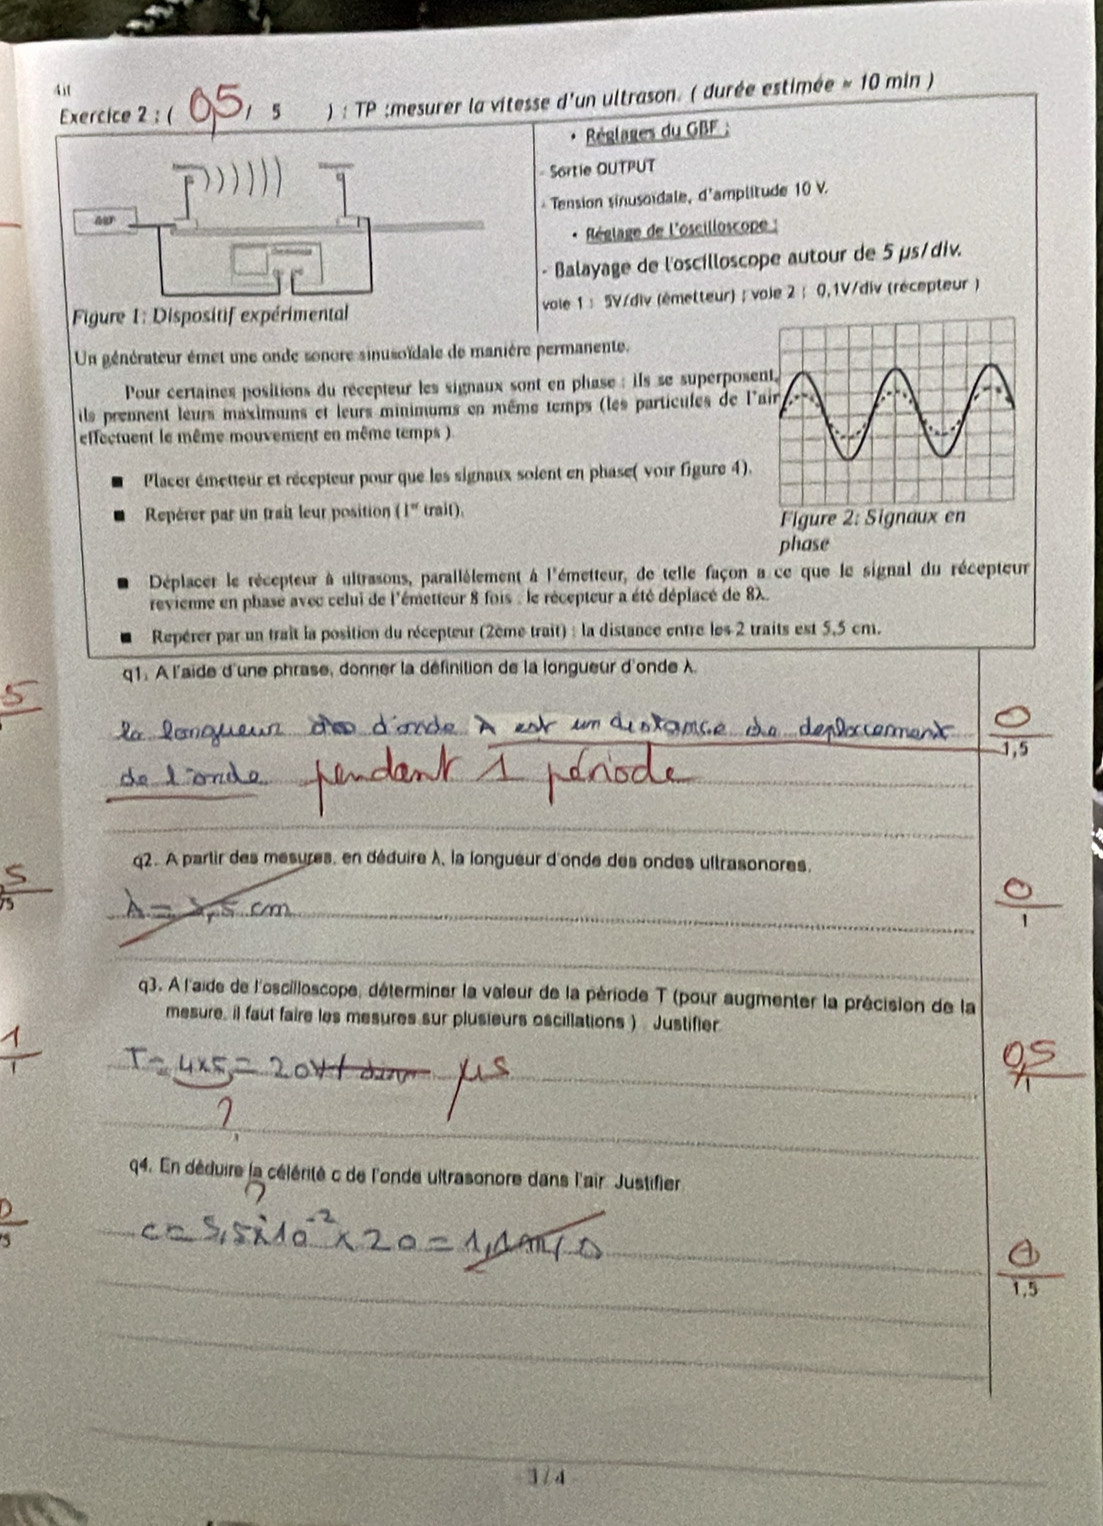 Exercice 2 : ( 0,5 / 5 ) : TP :mesurer la vitesse d'un ultrason. ( durée estimée ≈ 10 min )
• Réglages du GBF :
- Sortie OUTPUT
- Tension sinusoïdale, d'amplitude 10 V.
• Réglage de l'oscilloscope :
- Balayage de l'oscilloscope autour de 5 µs/div.
voie 1 : 5V/div (émetteur) ; voie 2 : 0,1V/div (récepteur )
GBF
Figure 1: Dispositif expérimental
Un générateur émet une onde sonore sinusoïdale de manière permanente.
Pour certaines positions du récepteur les signaux sont en phase : ils se superposent,
ils prennent leurs maximums et leurs minimums en même temps (les particules de l'air
effectuent le même mouvement en même temps )
■ Placer émetteur et récepteur pour que les signaux soient en phase( voir figure 4).
■ Repérer par un trait leur position (1er trait).
Figure 2: Signaux en
phase
■ Déplacer le récepteur à ultrasons, parallèlement à l'émetteur, de telle façon a ce que le signal du récepteur
revienne en phase avec celui de l'émetteur 8 fois : le récepteur a été déplacé de 8λ.
■ Repérer par un trait la position du récepteur (2ème trait) : la distance entre les 2 traits est 5,5 cm.
q1. A l'aide d'une phrase, donner la définition de la longueur d'onde λ.
la longueur d'onde λ est un distance de deplacement
0
1,5
de l'onde pendant 1 période
q2. A partir des mesures, en déduire λ, la longueur d'onde des ondes ultrasonores.
λ = 5,5 cm
0
1
q3. A l'aide de l'oscilloscope, déterminer la valeur de la période T (pour augmenter la précision de la
mesure, il faut faire les mesures sur plusieurs oscillations ) Justifier
T = 4x5 = 20 µs
?
0,5
1
q4. En déduire la célérité c de l'onde ultrasonore dans l'air Justifier
?
c = 5,5x10⁻² x 20 = 1,1 m/s
1,5
3 / 4